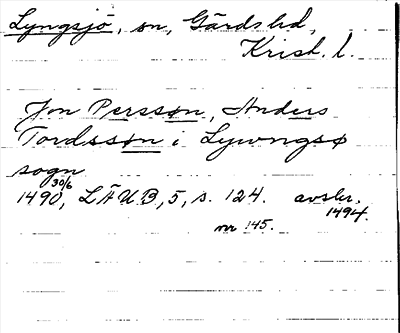 Lyngsjö, sn, Gärds hd,
Krist. l.
Jon Persson, Anders
Tordsson i Lywngsø
sogn
30/6
1490, LÄUB, 5, s. 124. avskr.
1494.
nr 145.